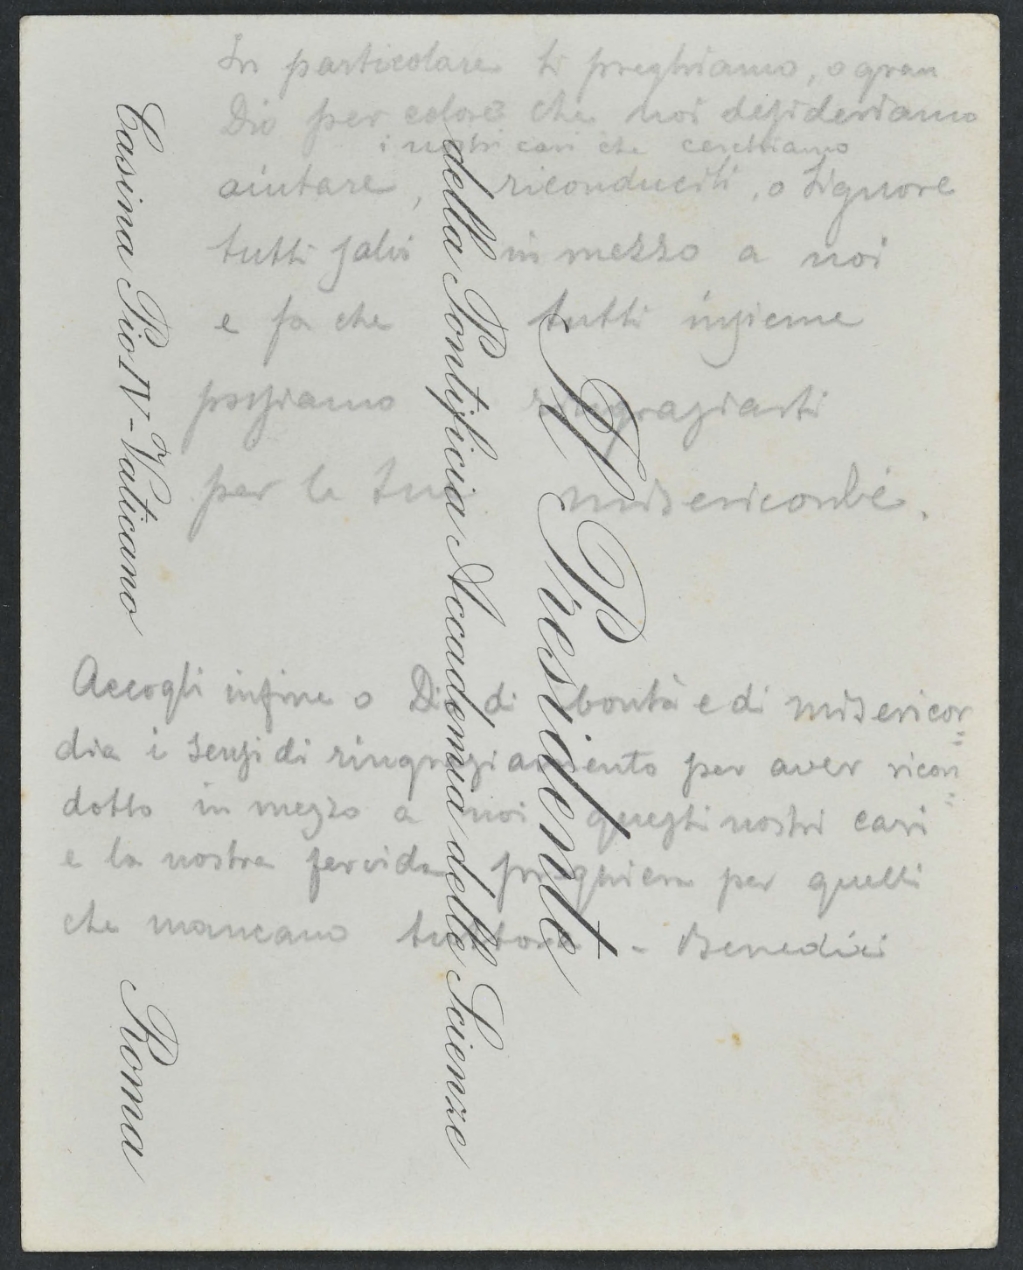 In particolare ti preghiamo, o gran
Dio per coloro che noi desideriamo
i nostri cari che cerchiamo
aiutare, riconduciti, o Signore
tutti salvi in mezzo a noi
e fa che tutti insieme
possiamo ringraziarti
per la tua
Accogli infine o Dio di bontà e di misericor=
dia i sensi di ringraziamento per aver ricon=
dotto in mezzo a noi questi nostri cari
e la nostra fervida preghiera per quelli
che mancano tuttora - Benedici
Il Presidente
della Pontificia Accademia delle Scienze
Casina Pio IV - Vaticano Roma